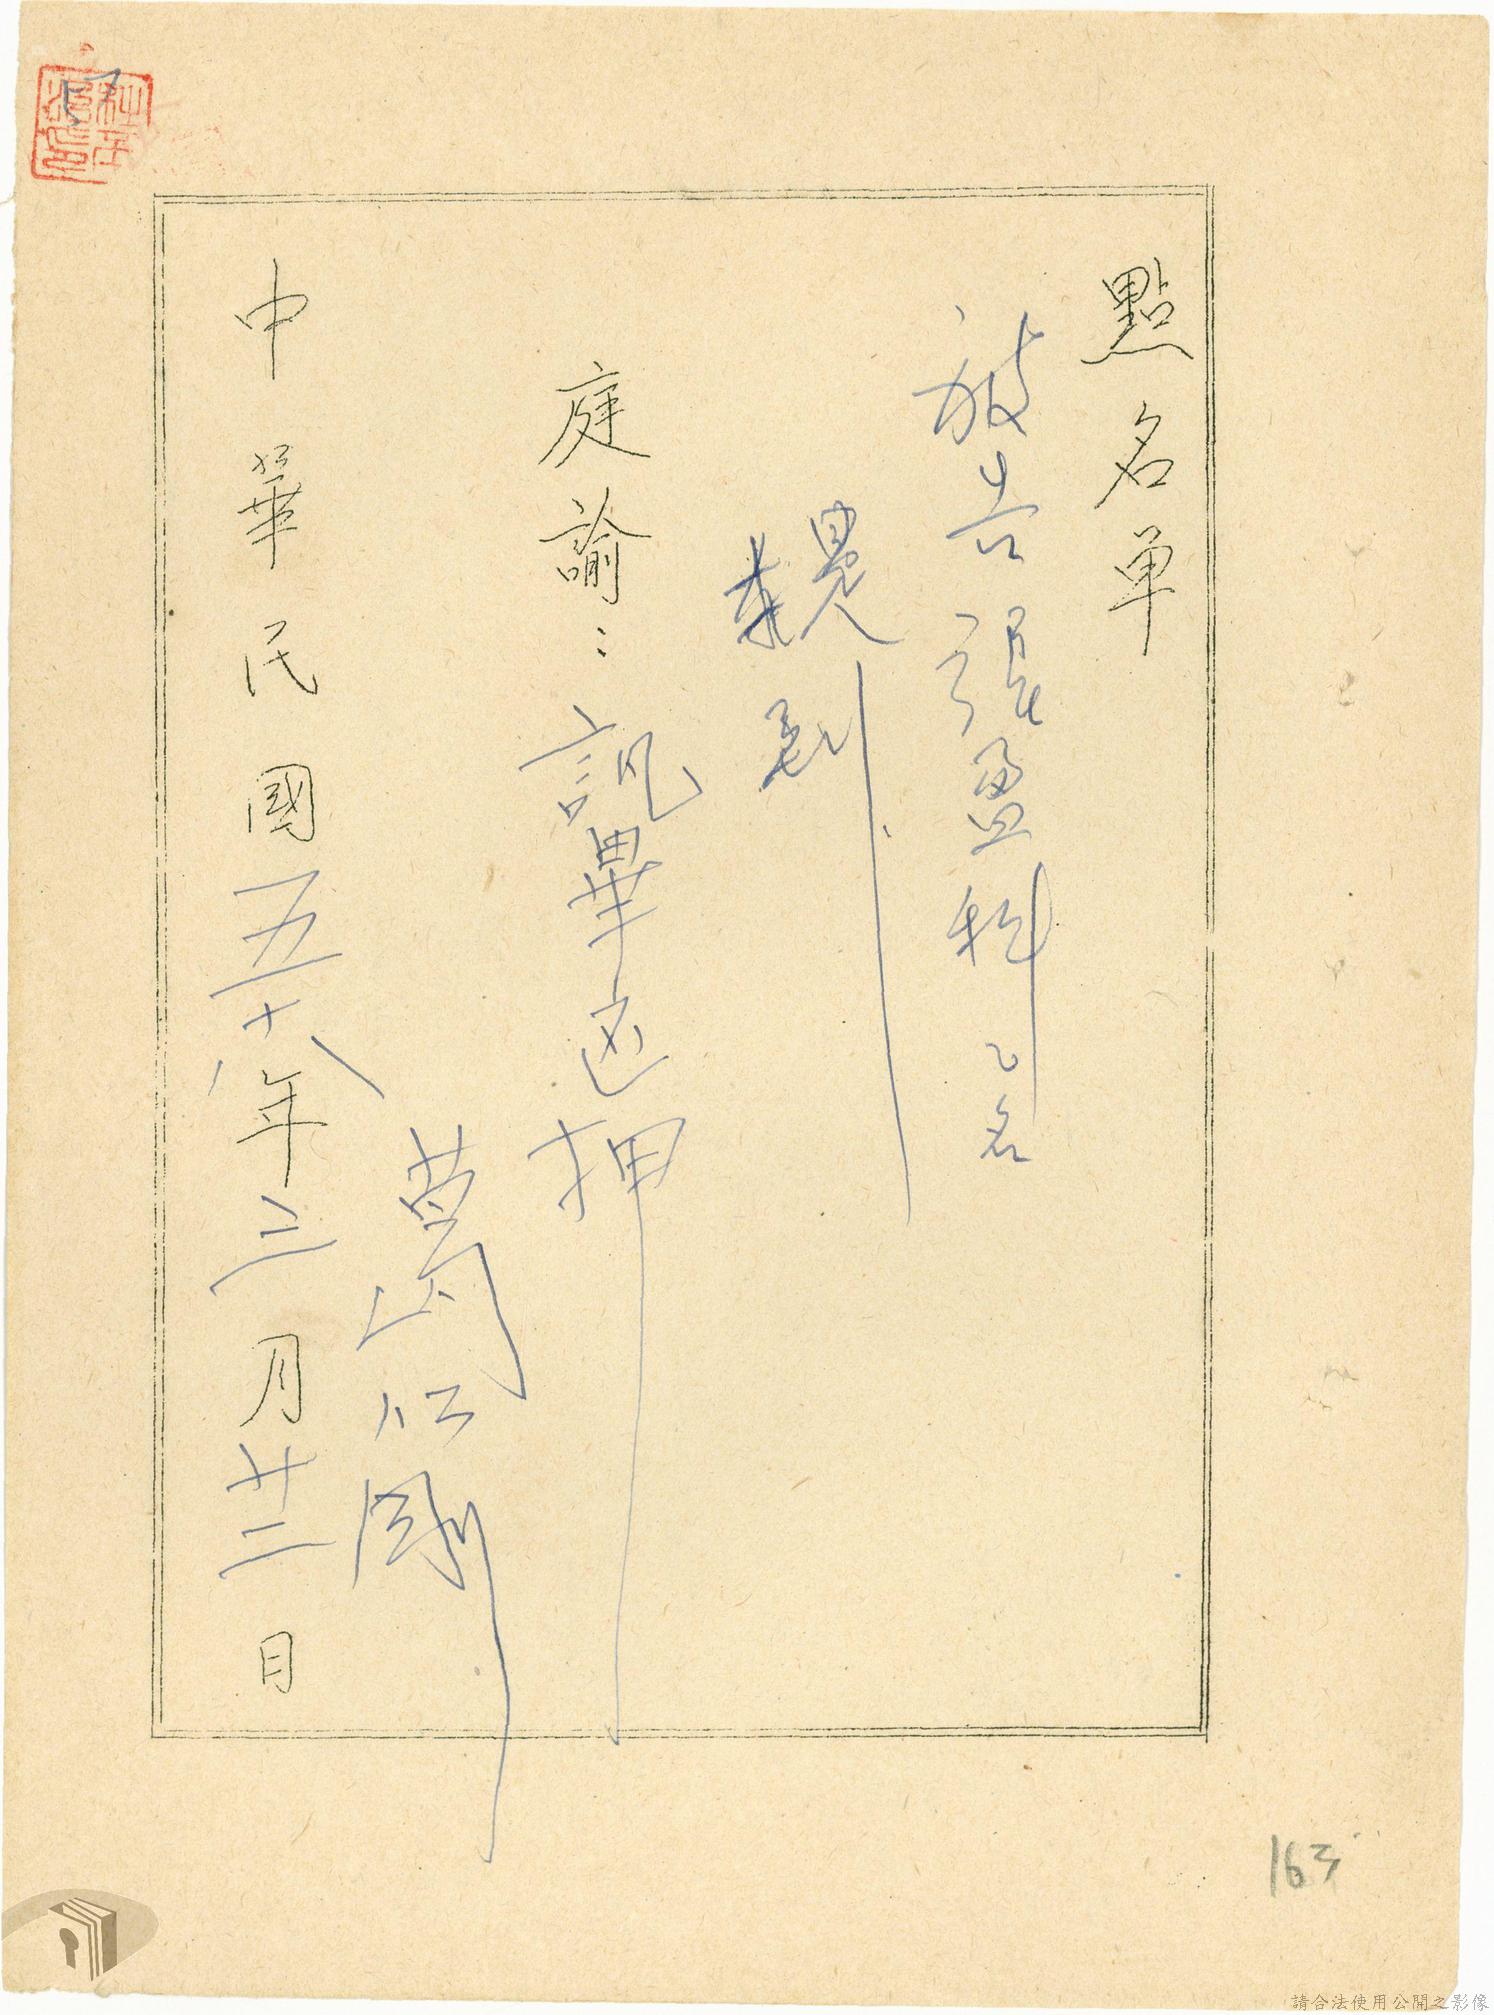 點名單
被告張盈科乙名
庭諭：訊畢還押
葛仁剛
中華民國五十八年三月廿二日
163
請合法使用公開之影像